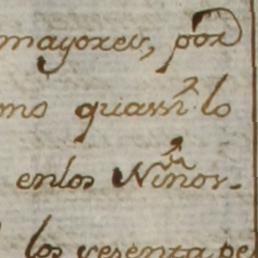 mayores, por
quassi lo
enlos Niños.
los sesenta pe